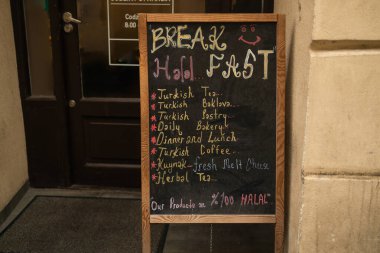 8:00
BREAK
Halal FAST
*Turkish Tea...
*Turkish Baklova..
*Turkish Pastry...
*Daily Bakery
*Dinner and Lunch
*Turkish Coffee...
*Kuymak-fresh Melt Cheese
*Herbal Tea...
"Our Products are %100 HALAL"